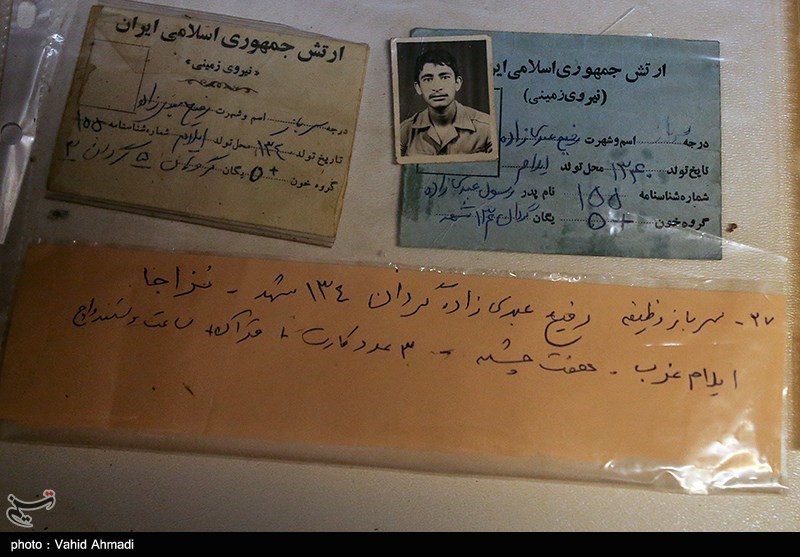 ارتش جمهوری اسلامی ایران
«نیروی زمینی»
درجه سرباز اسم و شهرت رفیع عبدی زاده
تاریخ تولد ۱۳۴۰ محل تولد ایلام شماره شناسنامه ۱۵۵
گروه خون O+ یگان گردان
ارتش جمهوری اسلامی ایر
(نیروی زمینی)
درجه سرباز اسم و شهرت رفیع عبدی زاده
تاریخ تولد ۱۳۴۰ محل تولد ایلام
شماره شناسنامه ۱۵۵ نام پدر رسول عبدی زاده
گروه خون O+ یگان گردان ۱۳۴ شهد
۳۷- سرباز وظیفه رفیع عبدی زاده گردان ۱۳۴ شهد - نزاجا
ایلام غرب - هفت چشمه - ۳ عدد کارت + قرآن + ساعت
تسنیم
photo : Vahid Ahmadi